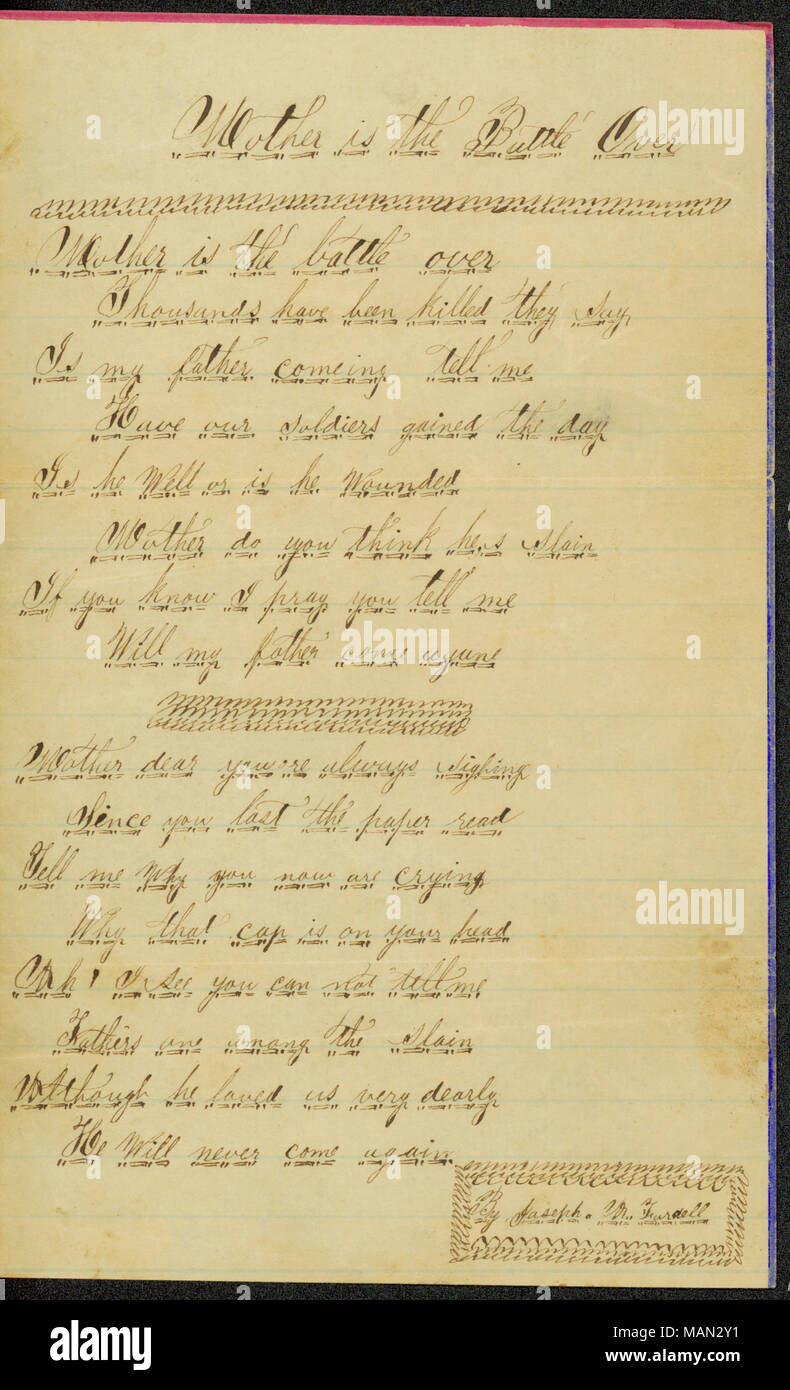 Mother is the Battle Over
Mother is the battle over
Thousands have been killed they say
Is my father comeing tell me
Have our soldiers gained the day
Is he Well or is he Wounded
Mother do you think he,s slain
If you know I pray you tell me
Will my father come agane
Mother dear you,re always sighing
Since you last the paper read
Tell me Why you now are crying
Why that cap is on your head
Ah! I see you can not tell me
Fathers one among the slain
Although he loved us very dearly
He Will never come again
By Joseph. M. Turdell
alamy
Image ID: MAN2Y1
www.alamy.com